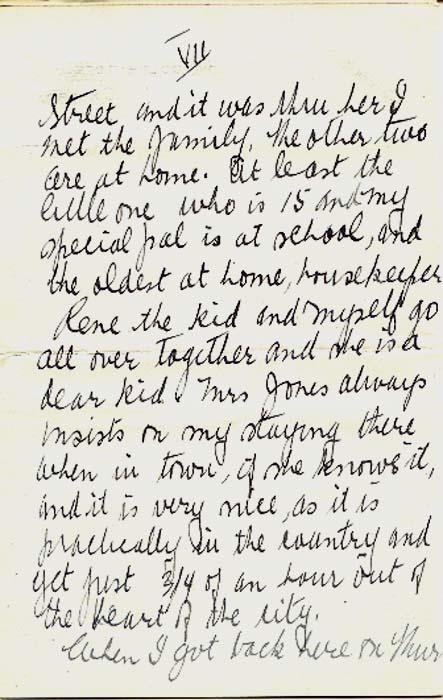 VII
Street and it was thru her I
met the family. The other two
are at home. At least the
little one who is 15 and my
special pal is at school, and
the oldest at home, housekeeper
Rene the kid and myself go
all over together and she is a
dear kid. Mrs Jones always
insists on my staying there
when in town, if she knows it,
and it is very nice, as it is
practically in the country and
yet just 3/4 of an hour out of
the heart of the city.
When I got back here on Thur